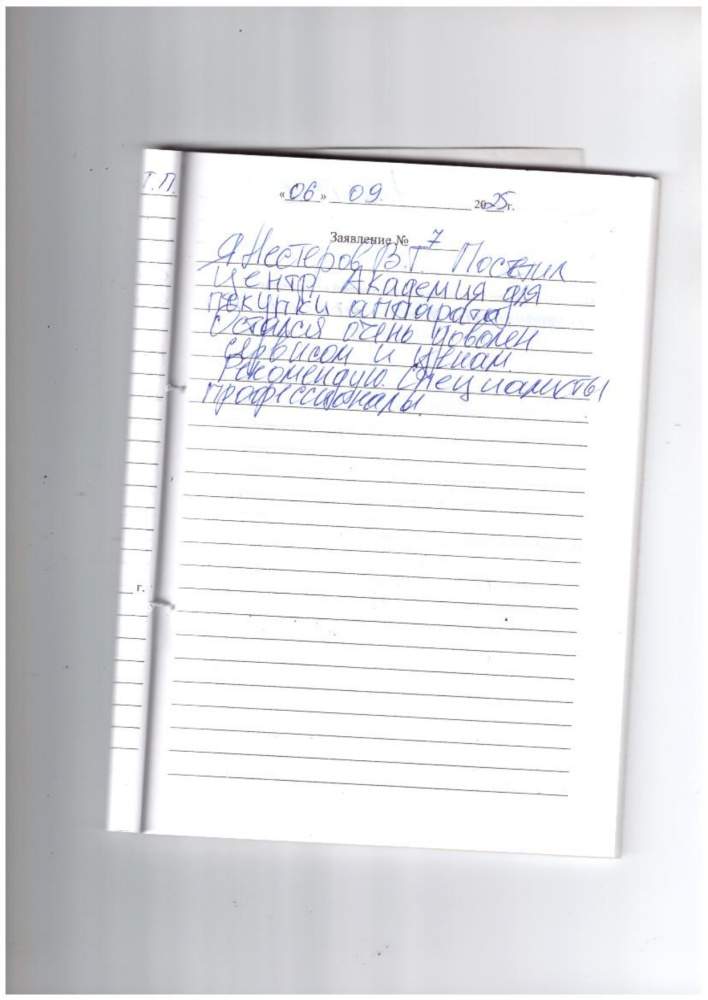 Т.П.
«06» 09. 2025г.
Заявление № 7
Я Нестеров В.Г. Посетил
Центр Академия для
покупки аппарата
Остался очень доволен
сервисом и ценам.
Рекомендую. Специалисты
профессионалы.
г.